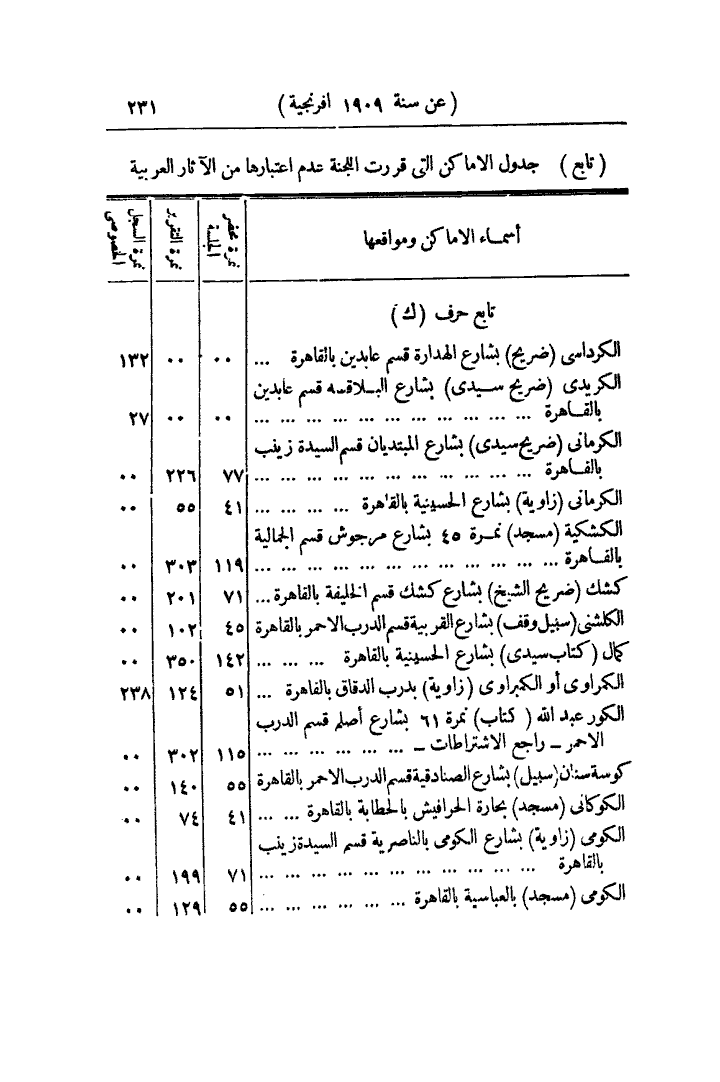 (عن سنة ١٩٠٩ افرنجية) ٢٣١
(تابع) جدول الاماكن التى قررت اللجنة عدم اعتبارها من الآثار العربية
أسماء الاماكن ومواقعها | نمرة محضر الجلسة | نمرة التقرير | نمرة السجل الخصوصى
تابع حرف (ك)
الكرداسى (ضريح) بشارع الهدارة قسم عابدين بالقاهرة ... ٠٠ ٠٠ ١٣٢
الكريدى (ضريح سيدى) بشارع البلاقسه قسم عابدين
بالقاهرة ... ... ... ... ... ... ... ... ... ... ... ٠٠ ٠٠ ٢٧
الكرمانى (ضريح سيدى) بشارع المبتديان قسم السيدة زينب
بالقاهرة ... ... ... ... ... ... ... ... ... ... ... ٧٧ ٢٢٦ ٠٠
الكرمانى (زاوية) بشارع الحسينية بالقاهرة ... ... ... ... ٤١ ٥٥ ٠٠
الكشكية (مسجد) نمرة ٤٥ بشارع مرجوش قسم الجمالية
بالقاهرة ... ... ... ... ... ... ... ... ... ... ... ... ١١٩ ٣٠٣ ٠٠
كشك (ضريح الشيخ) بشارع كشك قسم الخليفة بالقاهرة ... ٧١ ٢٠١ ٠٠
الكلشنى (سبيل وقف) بشارع القربية قسم الدرب الاحمر بالقاهرة ٤٥ ١٠٢ ٠٠
كمال (كتاب سيدى) بشارع الحسينية بالقاهرة ... ... ... ١٤٢ ٣٥٠ ٠٠
الكمراوى أو الكبراوى (زاوية) بدرب الدقاق بالقاهرة ... ٥١ ١٢٤ ٢٣٨
الكور عبد الله (كتاب) نمرة ٦١ بشارع أصلم قسم الدرب
الاحمر ـ راجع الاشتراطات ـ ... ... ... ... ... ... ١١٥ ٣٠٢ ٠٠
كوسة سنان (سبيل) بشارع الصنادقية قسم الدرب الاحمر بالقاهرة ٥٥ ١٤٠ ٠٠
الكوكانى (مسجد) بحارة الحرافيش بالحطابة بالقاهرة ... ... ٤١ ٧٤ ٠٠
الكومى (زاوية) بشارع الكومى بالناصرية قسم السيدة زينب
بالقاهرة ... ... ... ... ... ... ... ... ... ... ... ٧١ ١٩٩ ٠٠
الكومى (مسجد) بالعباسية بالقاهرة ... ... ... ... ... ... ٥٥ ١٢٩ ٠٠